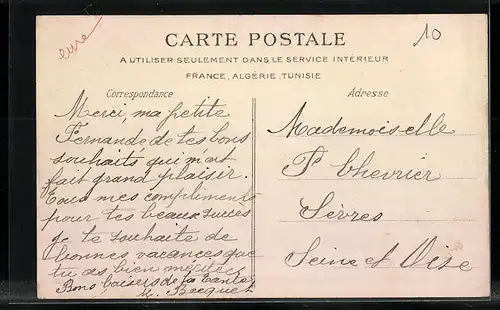 eure
10
CARTE POSTALE
A UTILISER SEULEMENT DANS LE SERVICE INTÉRIEUR
FRANCE, ALGÉRIE, TUNISIE
Correspondance
Merci, ma petite
Fernande de tes bons
souhaits qui m'ont
fait grand plaisir.
Tous mes compliments
pour tes beaux succes
je te souhaite de
bonnes vacances que
tu as bien méritées
Bons baisers de ta Tante
M. Becquet
Adresse
Mademoiselle
F. Chevrier
Sèvres
Seine et Oise